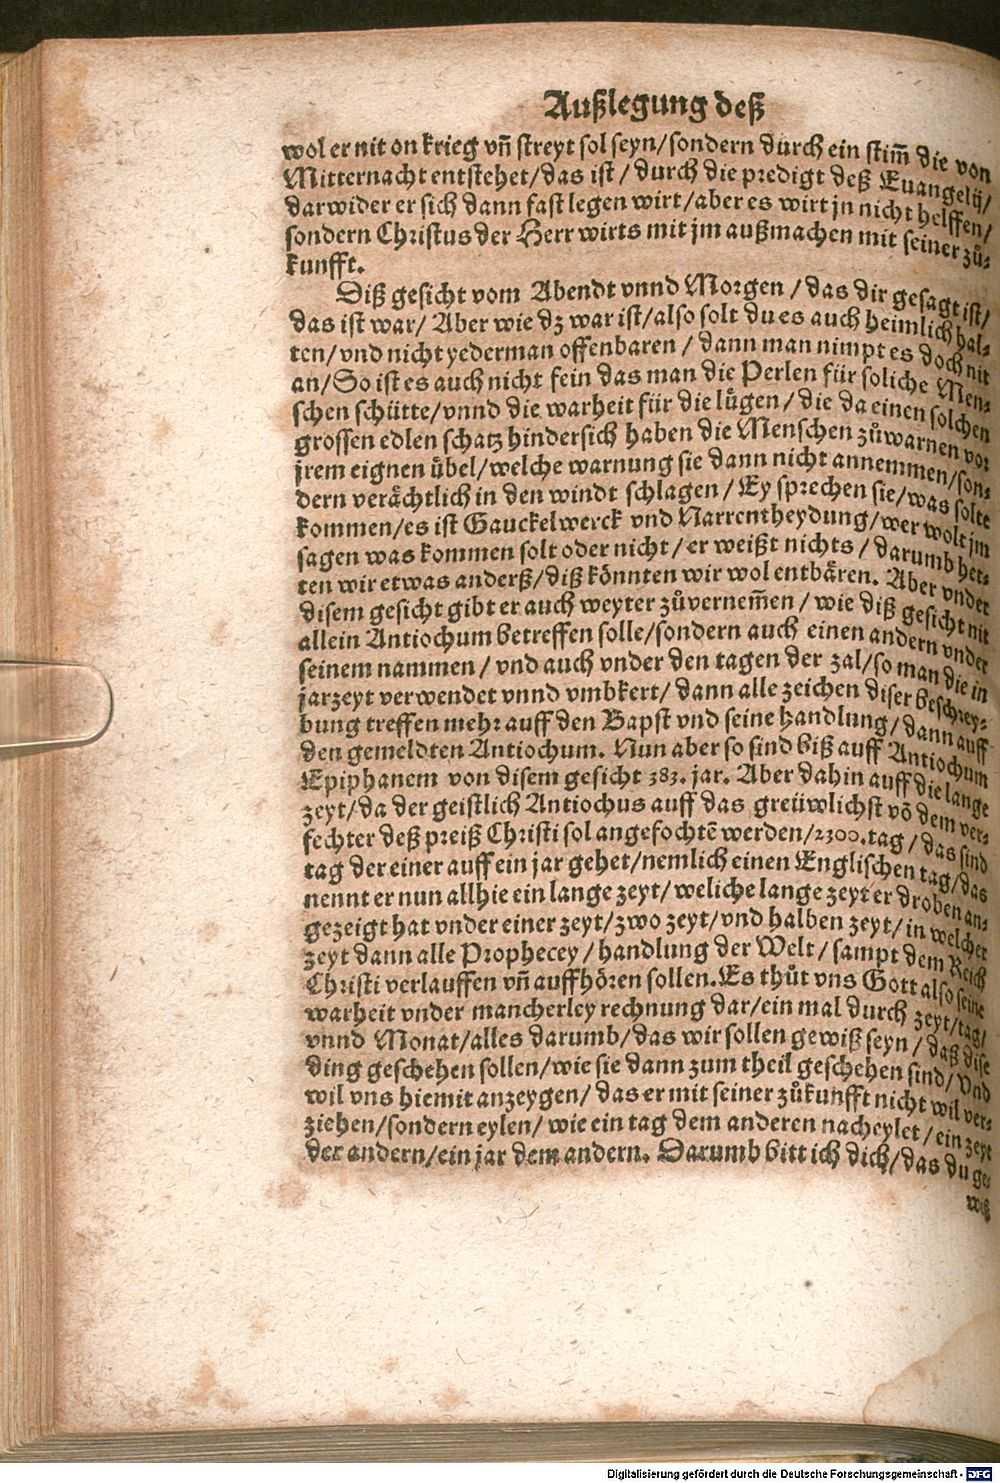 Außlegung deß
wol er nit on krieg vñ streyt sol seyn/sondern durch ein stim̃ die von
Mitternacht entstehet/das ist/durch die predigt deß Euangelij/
darwider er sich dann fast legen wirt/aber es wirt jn nicht helffen/
sondern Christus der Herr wirts mit jm außmachen mit seiner zů-
kunfft.
Diß gesicht vom Abendt vnnd Morgen/das dir gesagt ist/
das ist war/ Aber wie dz war ist/also solt du es auch heimlich hal-
ten/vnd nicht yederman offenbaren/dann man nimpt es doch nit
an/So ist es auch nicht fein das man die Perlen für soliche Men-
schen schütte/vnnd die warheit für die lügen/die da einen solchen
grossen edlen schatz hindersich haben die Menschen zůwarnen vor
jrem eignen übel/welche warnung sie dann nicht annemmen/son-
dern verächtlich in den windt schlagen/Ey sprechen sie/was solte
kommen/es ist Gauckelwerck vnd Narrentheydung/wer wolt jm
sagen was kommen solt oder nicht/er weißt nichts/darumb het-
ten wir etwas anderß/diß könnten wir wol entbären. Aber vnder
disem gesicht gibt er auch weyter zůvernem̃en/wie diß gesicht nit
allein Antiochum betreffen solle/sondern auch einen andern vnder
seinem nammen/vnd auch vnder den tagen der zal/so man die in
jarzeyt verwendet vnnd vmbkert/dann alle zeichen diser beschrey-
bung treffen mehr auff den Bapst vnd seine handlung/dann auff
den gemeldten Antiochum. Nun aber so sind biß auff Antiochum
Epiphanem von disem gesicht 383. jar. Aber dahin auff die lange
zeyt/da der geistlich Antiochus auff das greüwlichst võ dem ver-
fechter deß preiß Christi sol angefochtẽ werden/2300.tag/das sind
tag der einer auff ein jar gehet/nemlich einen Englischen tag/das
nennt er nun allhie ein lange zeyt/weliche lange zeyt er droben an-
gezeigt hat vnder einer zeyt/zwo zeyt/vnd halben zeyt/in welcher
zeyt dann alle Prophecey/handlung der Welt/sampt dem Reich
Christi verlauffen vñ auffhören sollen. Es thůt vns Gott also seine
warheit vnder mancherley rechnung dar/ein mal durch zeyt/tag/
vnnd Monat/alles darumb/das wir sollen gewiß seyn/daß dise
ding geschehen sollen/wie sie dann zum theil geschehen sind/Vnd
wil vns hiemit anzeygen/das er mit seiner zůkunfft nicht wil ver-
ziehen/sondern eylen/wie ein tag dem anderen nacheylet/ein zeyt
der andern/ein jar dem andern. Darumb bitt ich dich/das du ge-
wiß
Digitalisierung gefördert durch die Deutsche Forschungsgemeinschaft - DFG